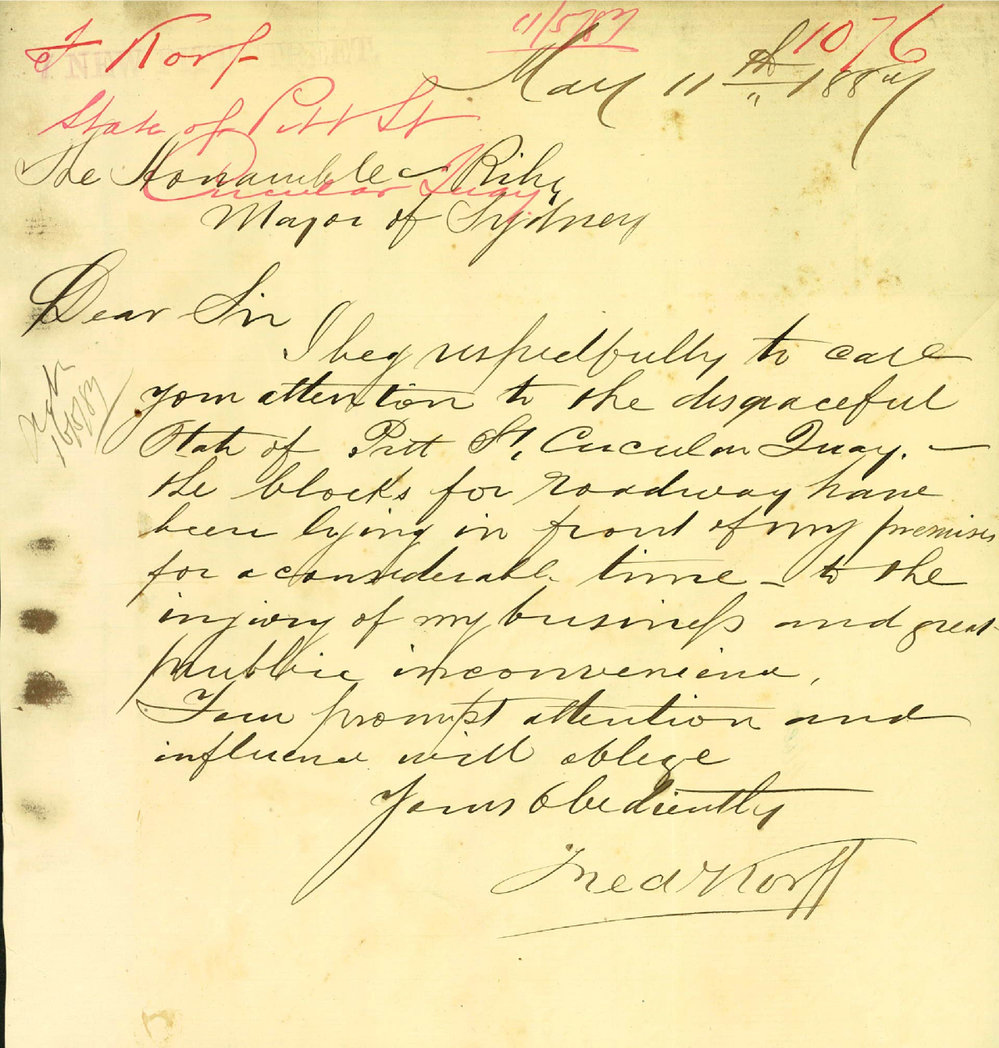 F Korf
11/5/87
1076
May 11th 1887
State of Pitt St
Circular Quay
The Honarable Riley
Mayor of Sydney
Dear Sir
I beg respectfully to call
your attention to the disgraceful
State of Pitt St, Circular Quay. —
the blocks for roadway have
been lying in front of my premises
for a considerable time — to the
injury of my business and great
public inconvenience,
Your prompt attention and
influence will oblige
Yours Obediently
Fred Korff